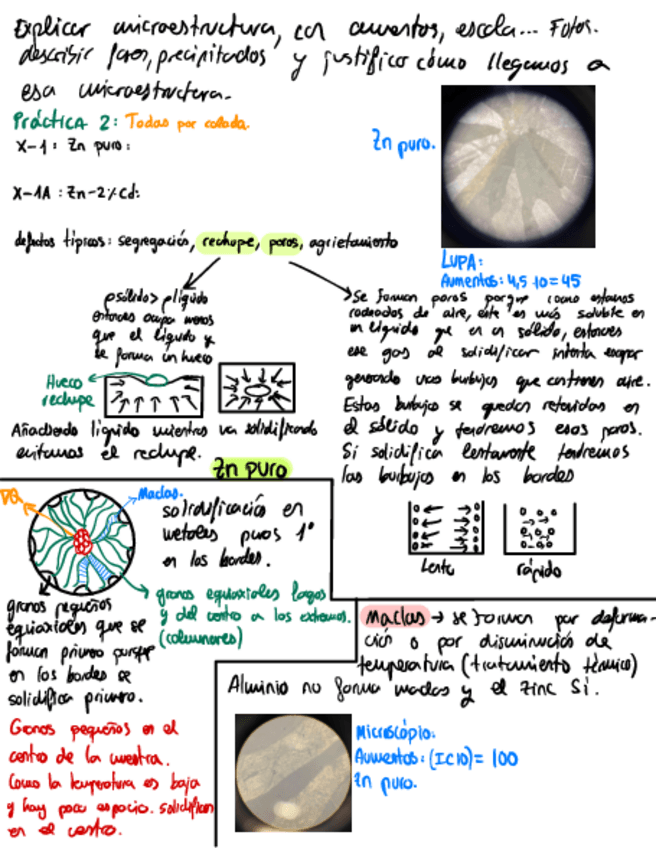 Explicar microestructura, con aumentos, escala... Fotos.
describir fases, precipitados y justificar cómo llegamos a
esa microestructura.
Práctica 2: Todas por colada.
X-1: Zn puro:
Zn puro.
X-1A: Zn-2%Cd:
defectos típicos: segregación, rechupe, poros, agrietamiento
LUPA:
Aumentos: 4,5·10=45
ρsólido > ρlíquido
entonces ocupa menos
que el líquido y
se forma un hueco
Hueco
rechupe
Añadiendo líquido mientras va solidificando
evitamos el rechupe.
Se forman poros porque como estamos
rodeados de aire, este es más soluble en
un líquido que en un sólido, entonces
ese gas al solidificar intenta escapar
generando unas burbujas que contienen aire.
Estas burbujas se quedan retenidas en
el sólido y tendremos esos poros.
Si solidifica lentamente tendremos
las burbujas en los bordes
lento
rápido
Zn puro
Maclas.
solidificación en
metales puros 1º
en los bordes.
granos equiaxiales largos
y del centro a los extremos.
(columnares)
granos pequeños
equiaxiales que se
forman primero porque
en los bordes se
solidifica primero.
Granos pequeños en el
centro de la muestra.
Como la temperatura es baja
y hay poco espacio. solidifican
en el centro.
maclas → se forman por deforma-
ción o por disminución de
temperatura (tratamiento térmico)
Aluminio no forma maclas y el zinc Si.
Microscópio:
Aumentos: (IC10)= 100
Zn puro.